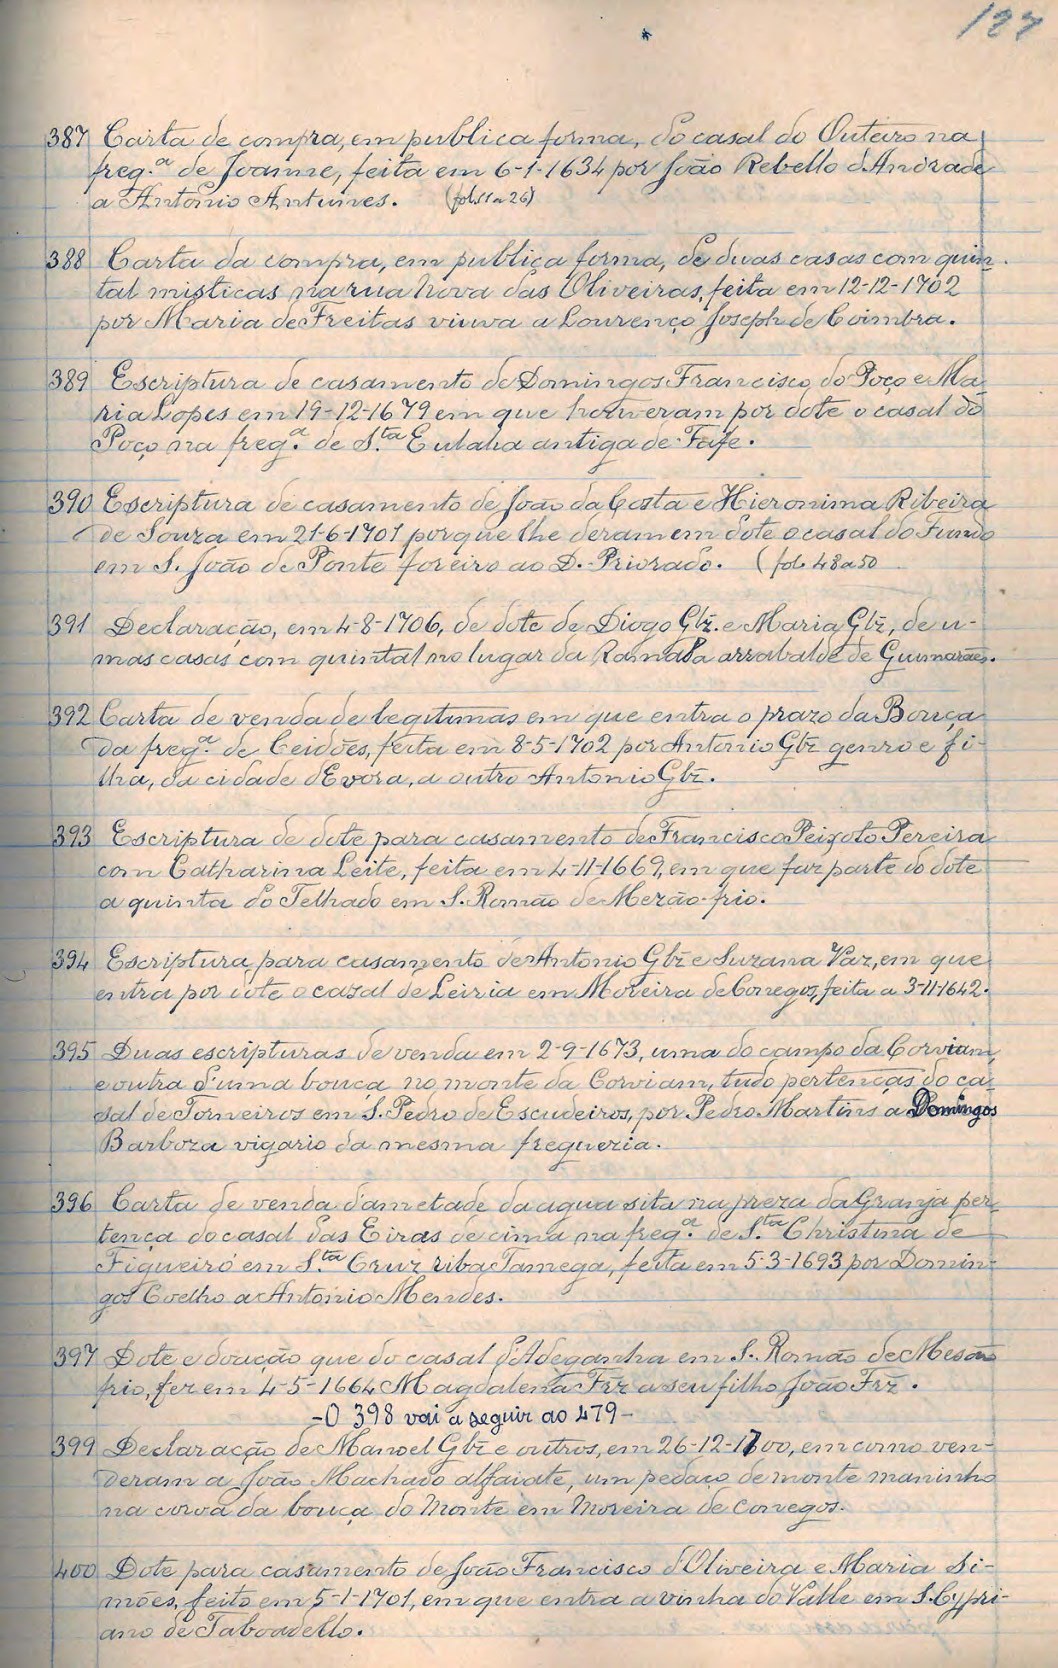 127
387 Carta de compra, em publica forma, do casal do Outeiro na
freg.ª de Joanne, feita em 6-1-1634 por João Rebello d'Andrade
a Antonio Antunes. (fols 1 a 26)
388 Carta da compra, em publica forma, de duas casas com quin-
tal misticas na rua Nova das Oliveiras, feita em 12-12-1702
por Maria de Freitas viuva a Lourenço Joseph de Coimbra.
389 Escriptura de casamento de Domingos Francisco do Poço e Ma-
ria Lopes em 19-12-1679 em que houveram por dote o casal do
Poço na freg.ª de S.ta Eulalia antiga de Fafe.
390 Escriptura de casamento de João da Costa e Hieronima Ribeira
de Souza em 21-6-1701 porque lhe deram em dote o casal do Fundo
em S. João de Ponte foreiro ao D. Priorado. (fol. 48 a 50
391 Declaração, em 4-8-1706, de dote de Diogo Glz. e Maria Glz, de u-
mas casas com quintal no lugar da Ramada arrabalde de Guimarães.
392 Carta de venda de legitimas em que entra o prazo da Bouça
da freg.ª de Ceidões, feita em 8-5-1702 por Antonio Glz genro e fi-
lha, da cidade d'Evora, a outro Antonio Glz.
393 Escriptura de dote para casamento de Francisco Peixoto Pereira
com Catharina Leite, feita em 4-11-1669, em que faz parte do dote
a quinta do Telhado em S. Romão de Mezão-frio.
394 Escriptura para casamento de Antonio Glz e Suzana Vaz, em que
entra por dote o casal de Leiria em Moreira de Conegos, feita a 3-11-1642.
395 Duas escripturas de venda em 2-9-1673, uma do campo da Corviam,
e outra d'uma bouça no monte da Corviam, tudo pertenças do ca-
sal de Torneiros em S. Pedro de Escudeiros, por Pedro Martins a Domingos
Barboza vigario da mesma freguezia.
396 Carta de venda d'ametade da agua sita na preza da Granja per-
tença do casal das Eiras de cima na freg.ª de S.ta Christina de
Figueiró em S.ta Cruz riba Tamega, feita em 5-3-1693 por Domin-
gos Coelho a Antonio Mendes.
397 Dote e doação que do casal d'Adeganha em S. Romão de Mesão
frio, fez em 4-5-1664 Magdalena Frz a seu filho João Frz.
-O 398 vai a seguir ao 479-
399 Declaração de Manoel Glz e outros, em 26-12-1700, em como ven-
deram a João Machado alfaiate, um pedaço de monte maninho
na coroa da bouça do Monte em Moreira de Conegos.
400 Dote para casamento de João Francisco d'Oliveira e Maria Si-
mões, feito em 5-1-1701, em que entra a vinha do Valle em S. Cypri-
ano de Taboadello.